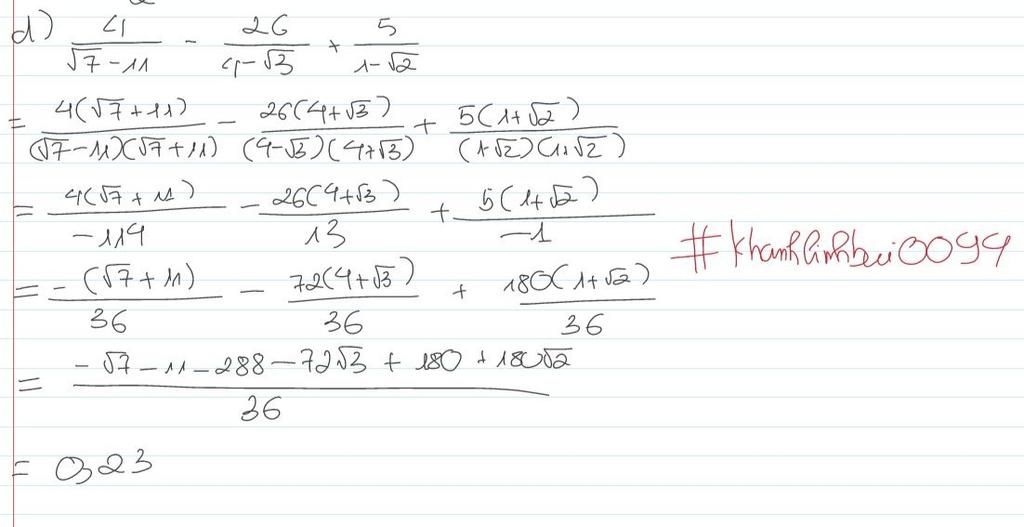 d) 4/(√7-11) - 26/(4-√3) + 5/(1-√2)
= 4(√7+11)/((√7-11)(√7+11)) - 26(4+√3)/((4-√3)(4+√3)) + 5(1+√2)/((1-√2)(1+√2))
= 4(√7+11)/-114 - 26(4+√3)/13 + 5(1+√2)/-1
= -(√7+11)/36 - 72(4+√3)/36 + 180(1+√2)/36
#khanhlinhbui0094
= (-√7-11-288-72√3+180+180√2)/36
= 0,23